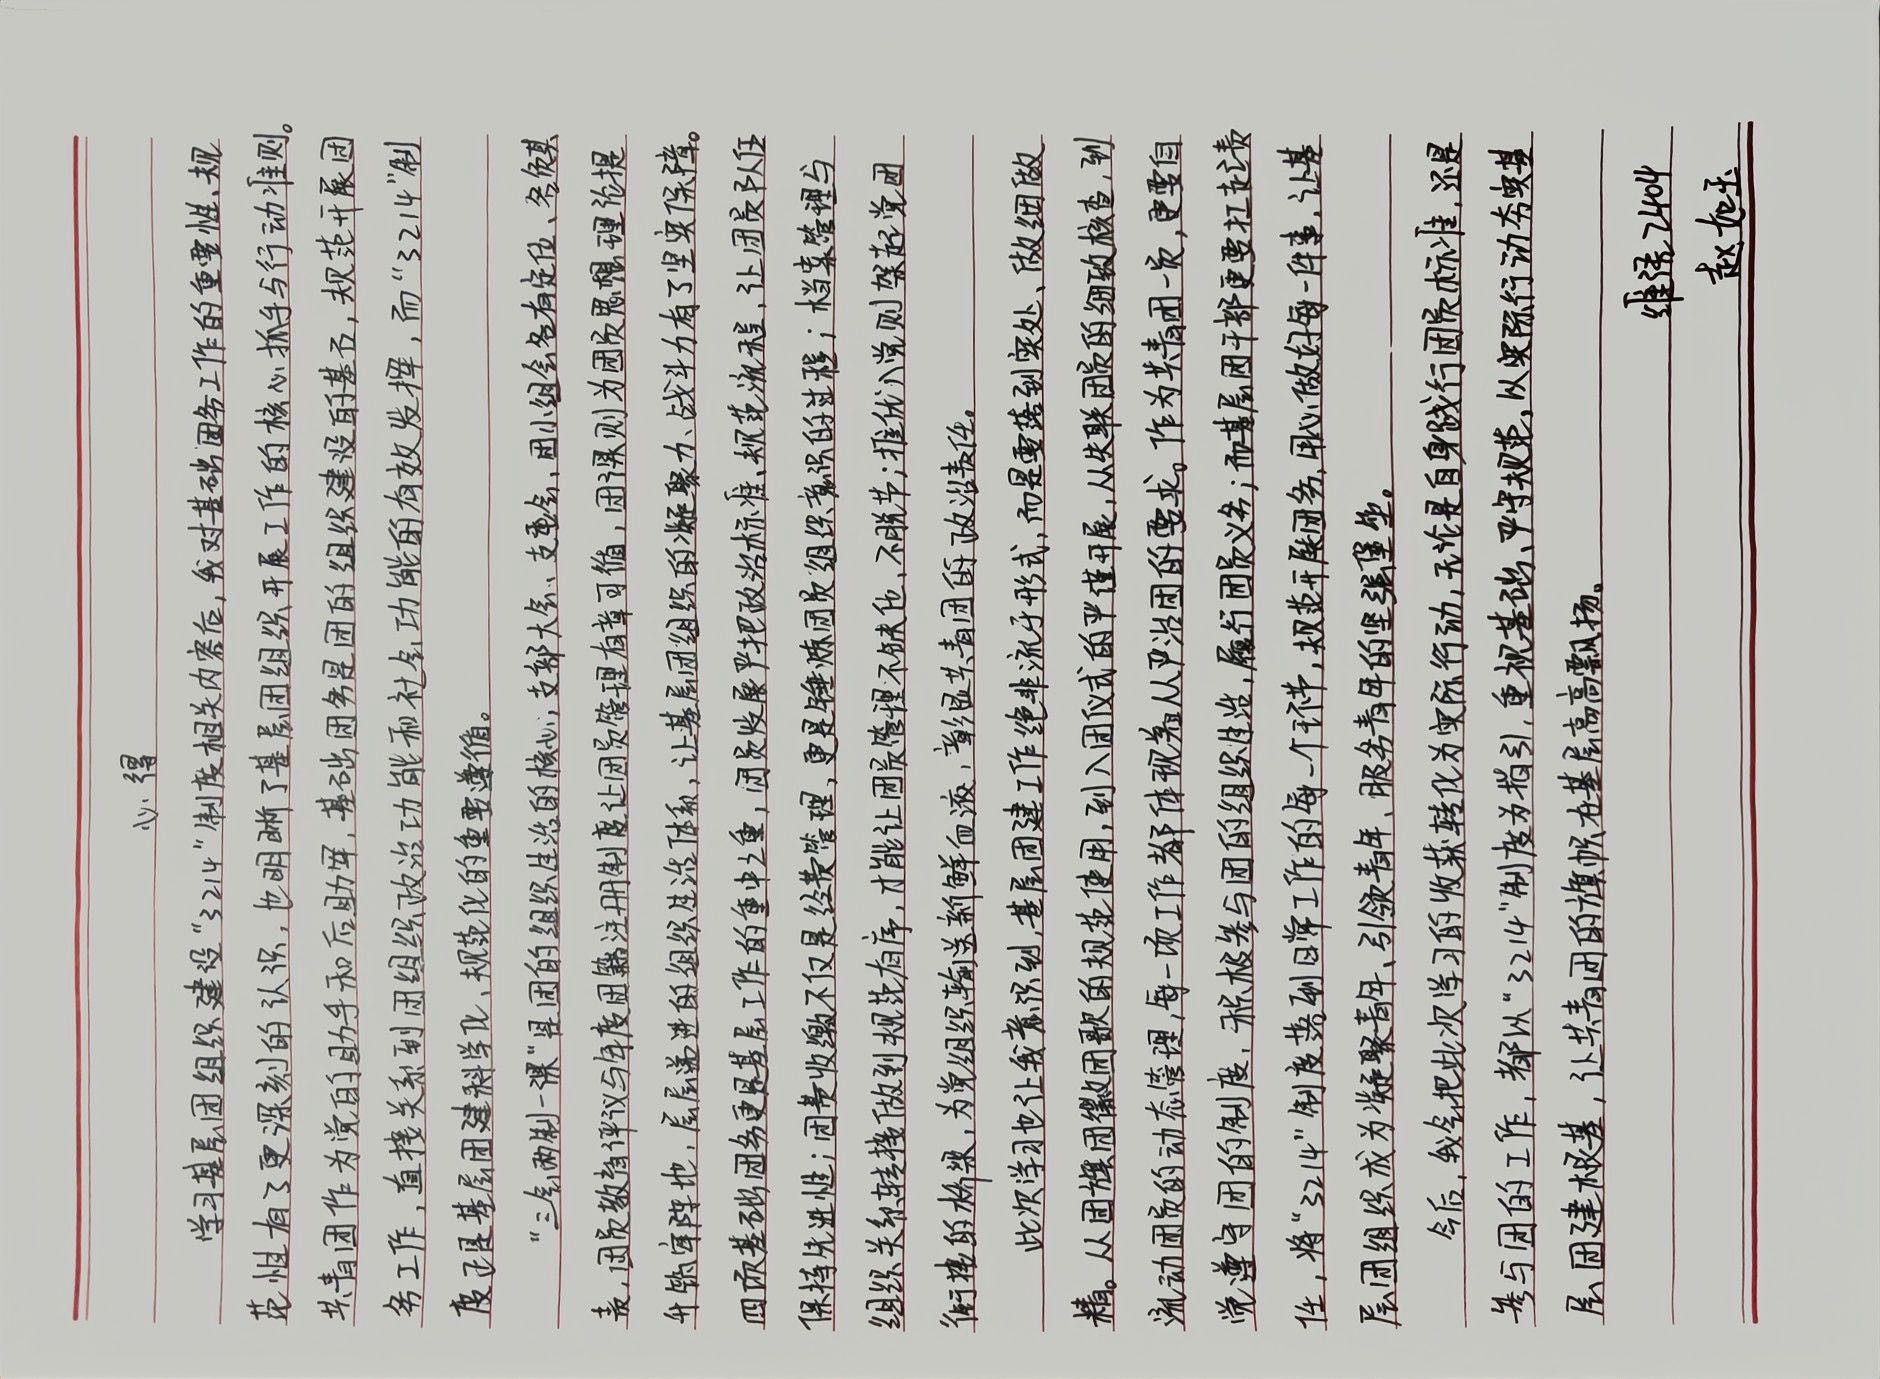 心得
学习基层团组织建设“3214”制度相关内容后，我对基础团务工作的重要性、规
范性有了更深刻的认识，也明晰了基层团组织开展工作的核心抓手与行动准则。
共青团作为党的助手和后助军，基础团务是团的组织建设的基石，规范开展团
务工作，直接关系到团组织政治功能和社会功能的有效发挥，而“3214”制
度正是基层团建科学化、规范化的重要遵循。
“三会两制一课”是团的组织生活的核心，支部大会、支委会、团小组会各有定位、各负其
责，团员教育评议与年度团籍注册制度让团员管理有章可循，团课则为团员思想理论提
升筑牢阵地，层层递进的组织生活体系，让基层团组织的凝聚力、战斗力有了坚实保障。
四项基础团务更是基层工作的重中之重，团员发展严把政治标准、规范流程，让团员队伍
保持先进性；团费收缴不仅是经费管理，更是锤炼团员组织意识的过程；档案管理与
组织关系转接做到规范有序，才能让团员管理不缺位、不脱节；推优入党则架起党团
衔接的桥梁，为党组织输送新鲜血液，彰显共青团的政治责任。
此次学习也让我意识到，基层团建工作绝非流于形式，而是要落到实处、做细做
精。从团旗团徽团歌的规范使用，到入团仪式的严谨开展，从失联团员的细致核查，到
流动团员的动态管理，每一项工作都体现着从严治团的要求。作为共青团一员，更要自
觉遵守团的制度，积极参与团的组织生活，履行团员义务；而基层团干部更要扛起责
任，将“3214”制度落到日常工作的每一个环节，规范开展团务，用心做好每一件事，让基
层团组织成为凝聚青年、引领青年、服务青年的坚强堡垒。
今后，我会把此次学习的收获转化为实际行动，无论是自身践行团员标准，还是
参与团的工作，都以“3214”制度为指引，重视基础、严守规范，以实际行动夯实基
层团建根基，让共青团的旗帜在基层高高飘扬。
维强2404
赵